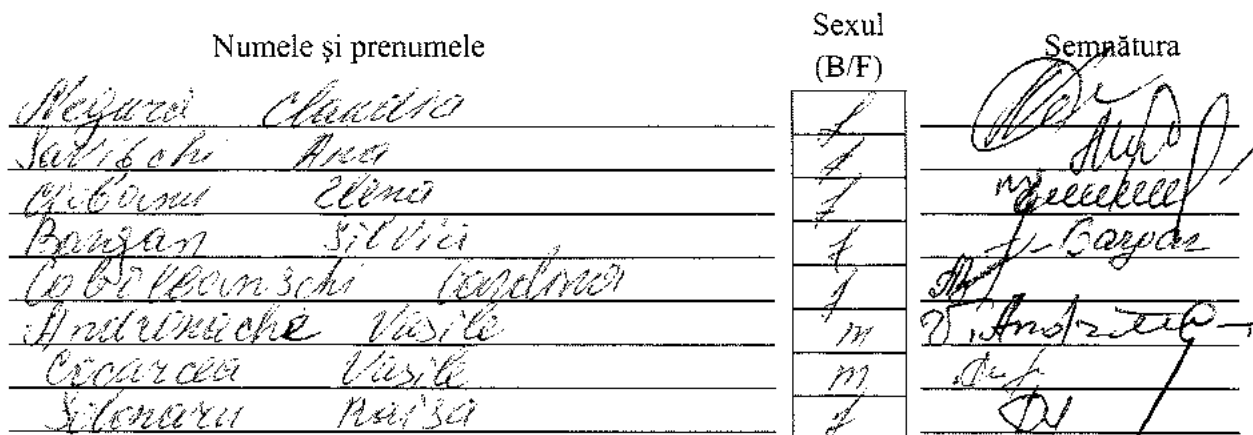 Numele și prenumele Sexul (B/F) Semnătura
Negura Claudia f
Savițchi Ana f
Ciobanu Elena f
Bargan Silvia f Bargan
Cobîleanschi f
Andronache Vasile m V. Andr
Cocarcea Vasile m
Raisa f